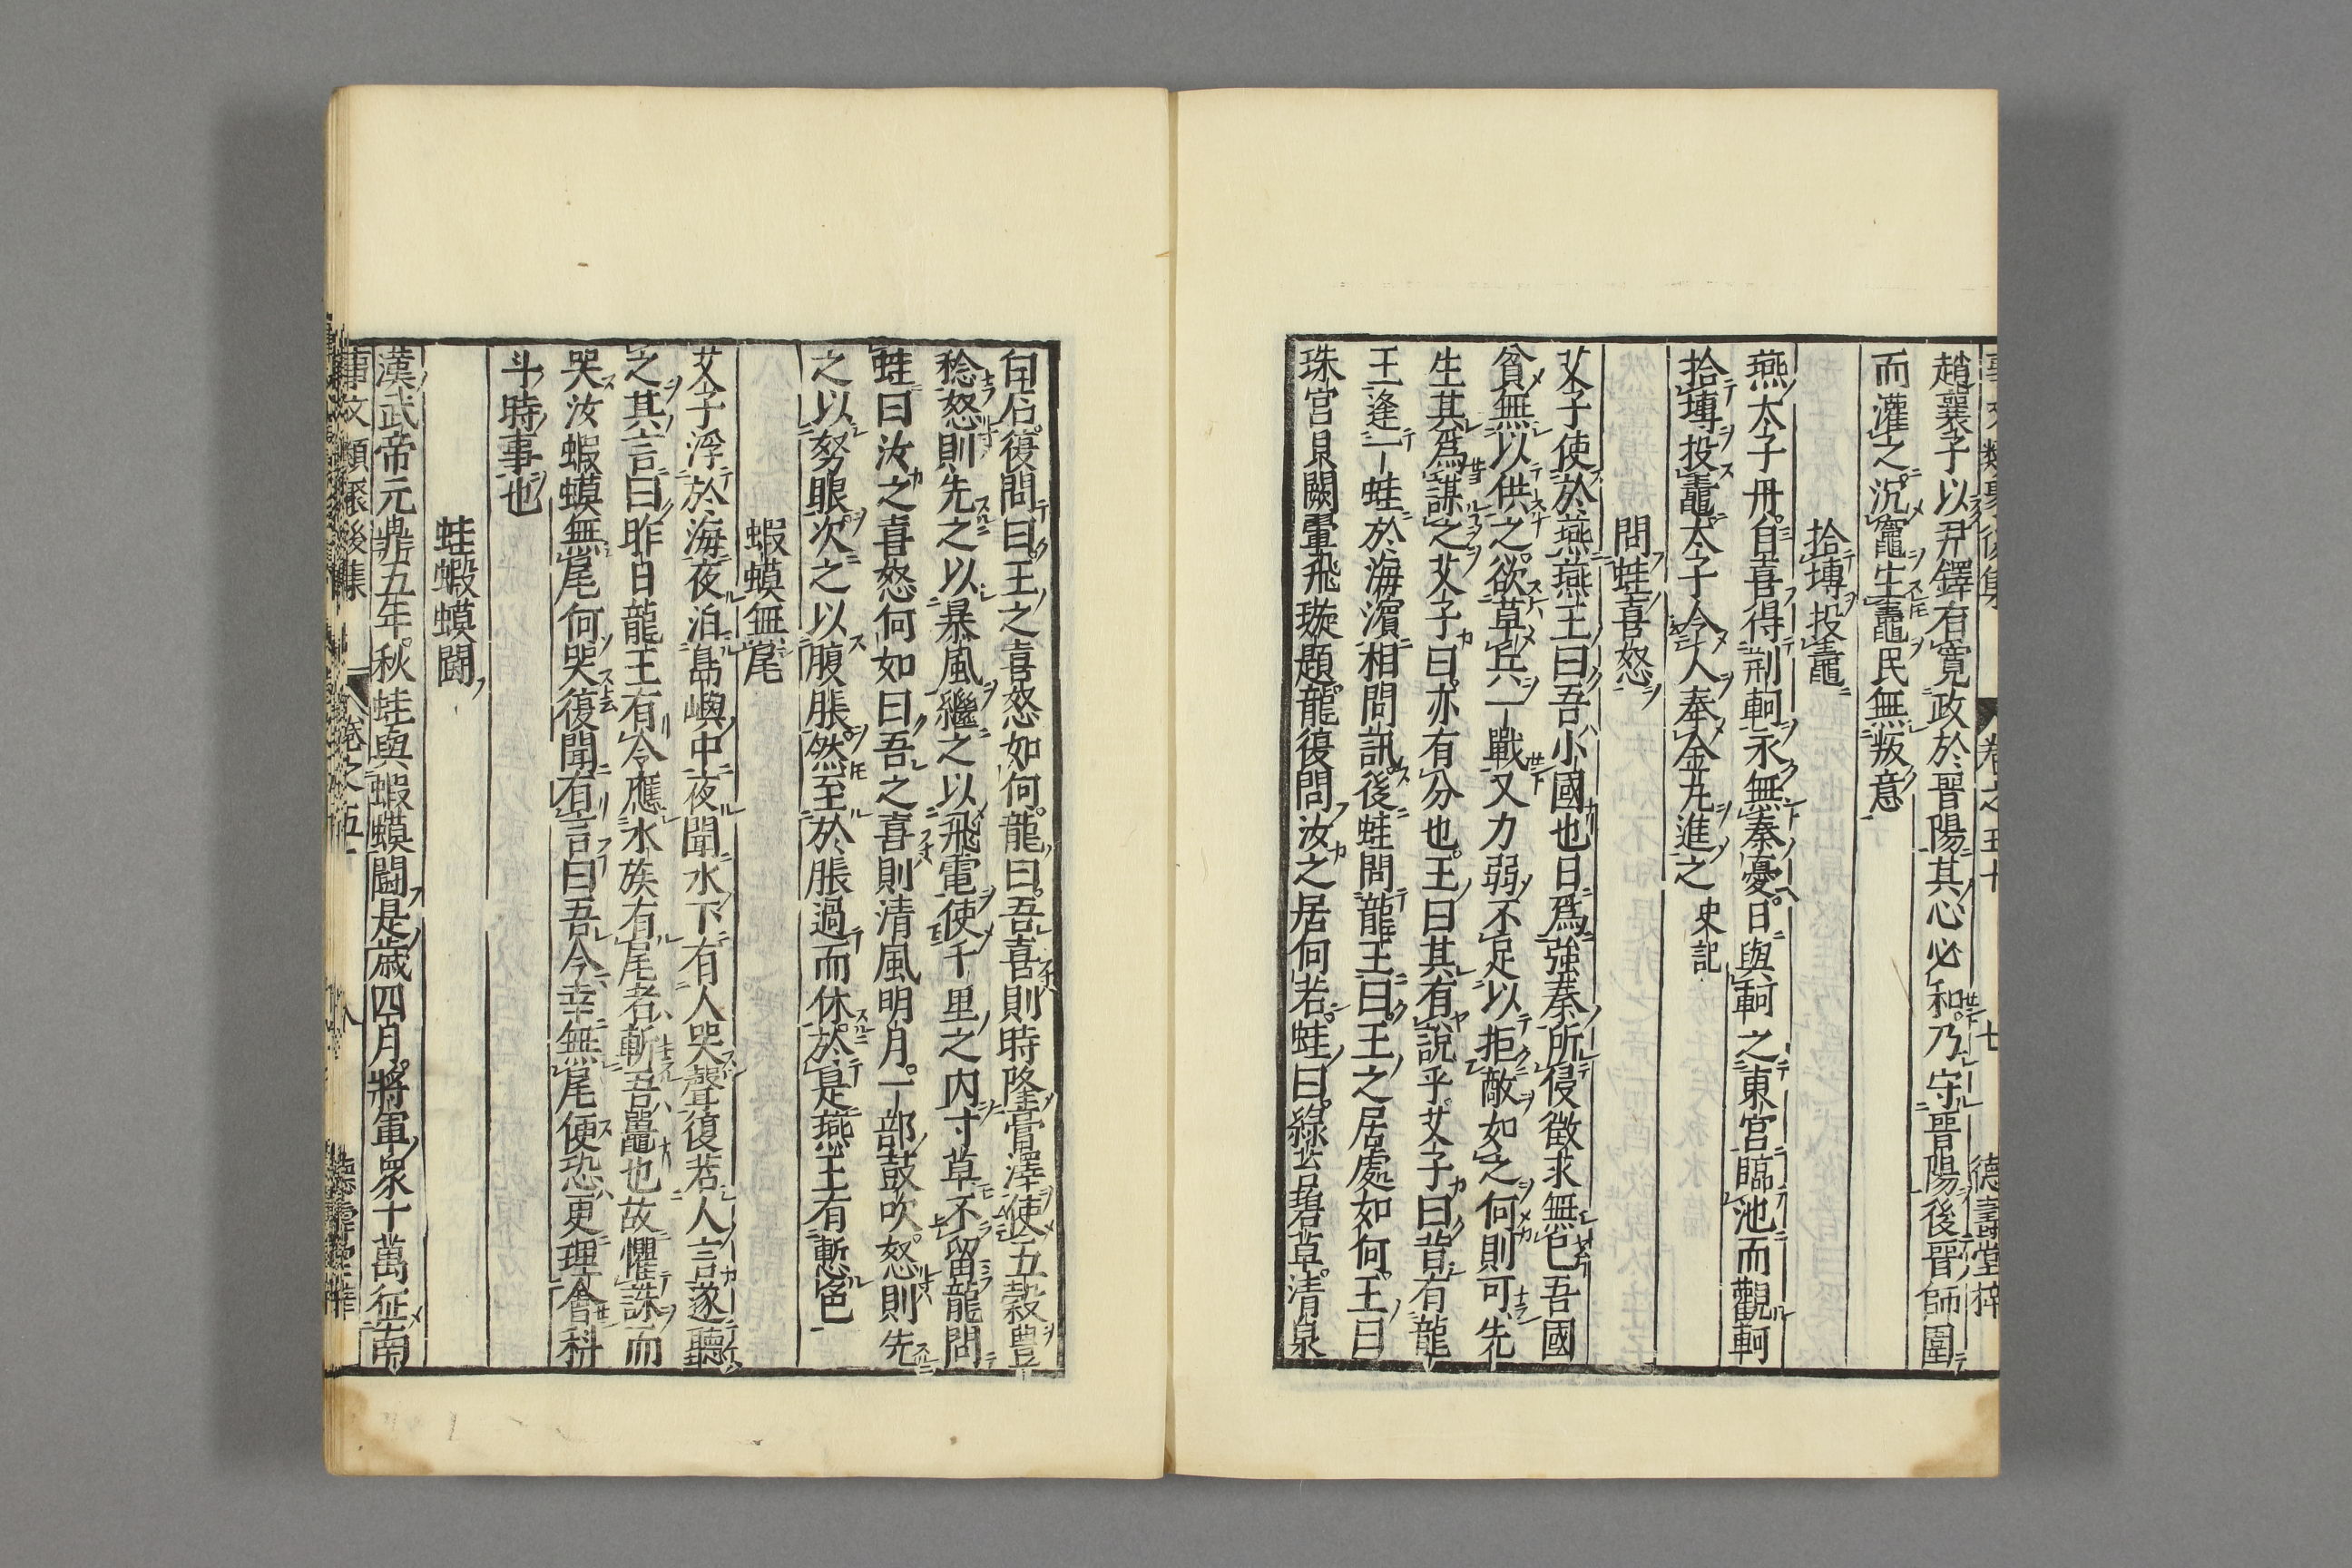 趙襄子以尹鐸有寛政於晉陽其心必和乃守晉陽後晉師圍
而灌之沉竈生鼃民無叛意
拾塼投鼃
燕太子丹自喜得荆軻永無秦憂日與軻之東宮臨池而觀軻
拾塼投鼃太子令人奉金丸進之 史記
問蛙喜怒
艾子使於燕燕王曰吾小國也日爲強秦所侵徴求無已吾國
貧無以供之欲草兵一戰又力弱不足以拒敵如之何則可先
生其爲謀之艾子曰亦有分也王曰其有説乎艾子曰昔有龍
王逢一蛙於海濵相問訊後蛙問龍王曰王之居處如何王曰
珠宮貝闕翬飛璇題龍復問汝之居何若蛙曰綠苔碧草清泉
白石復問曰王之喜怒如何龍曰吾喜則時降膏澤使五穀豊
稔怒則先之以暴風繼之以飛電使千里之内寸草不留龍問
蛙曰汝之喜怒何如曰吾之喜則清風明月一部鼓吹怒則先
之以努眼次之以腹脹然至於脹過而休於是燕王有慙色
蝦蟆無尾
艾子浮於海夜泊島嶼中夜聞水下有人哭聲復若人言遂聽
之其言曰昨日龍王有令應水族有尾者斬吾鼉也故懼誅而
哭汝蝦蟆無尾何哭復聞有言曰吾今幸無尾使恐更理會科
斗時事也
蛙蝦蟆鬪
漢武帝元鼎五年秋蛙與蝦蟆鬪是歳四月將軍衆十萬征南
事文類聚後集 八